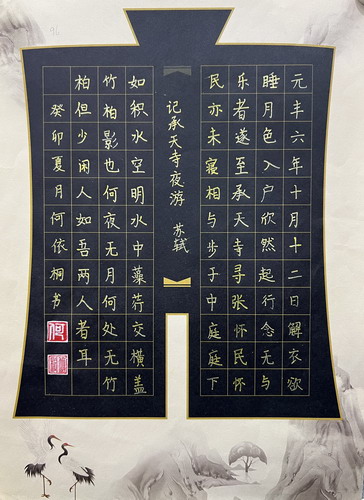 元丰六年十月十二日解衣欲
睡月色入户欣然起行念无与
乐者遂至承天寺寻张怀民怀
民亦未寝相与步于中庭庭下
记承天寺夜游 苏轼
如积水空明水中藻荇交横盖
竹柏影也何夜无月何处无竹
柏但少闲人如吾两人者耳
癸卯夏月何依桐书
何